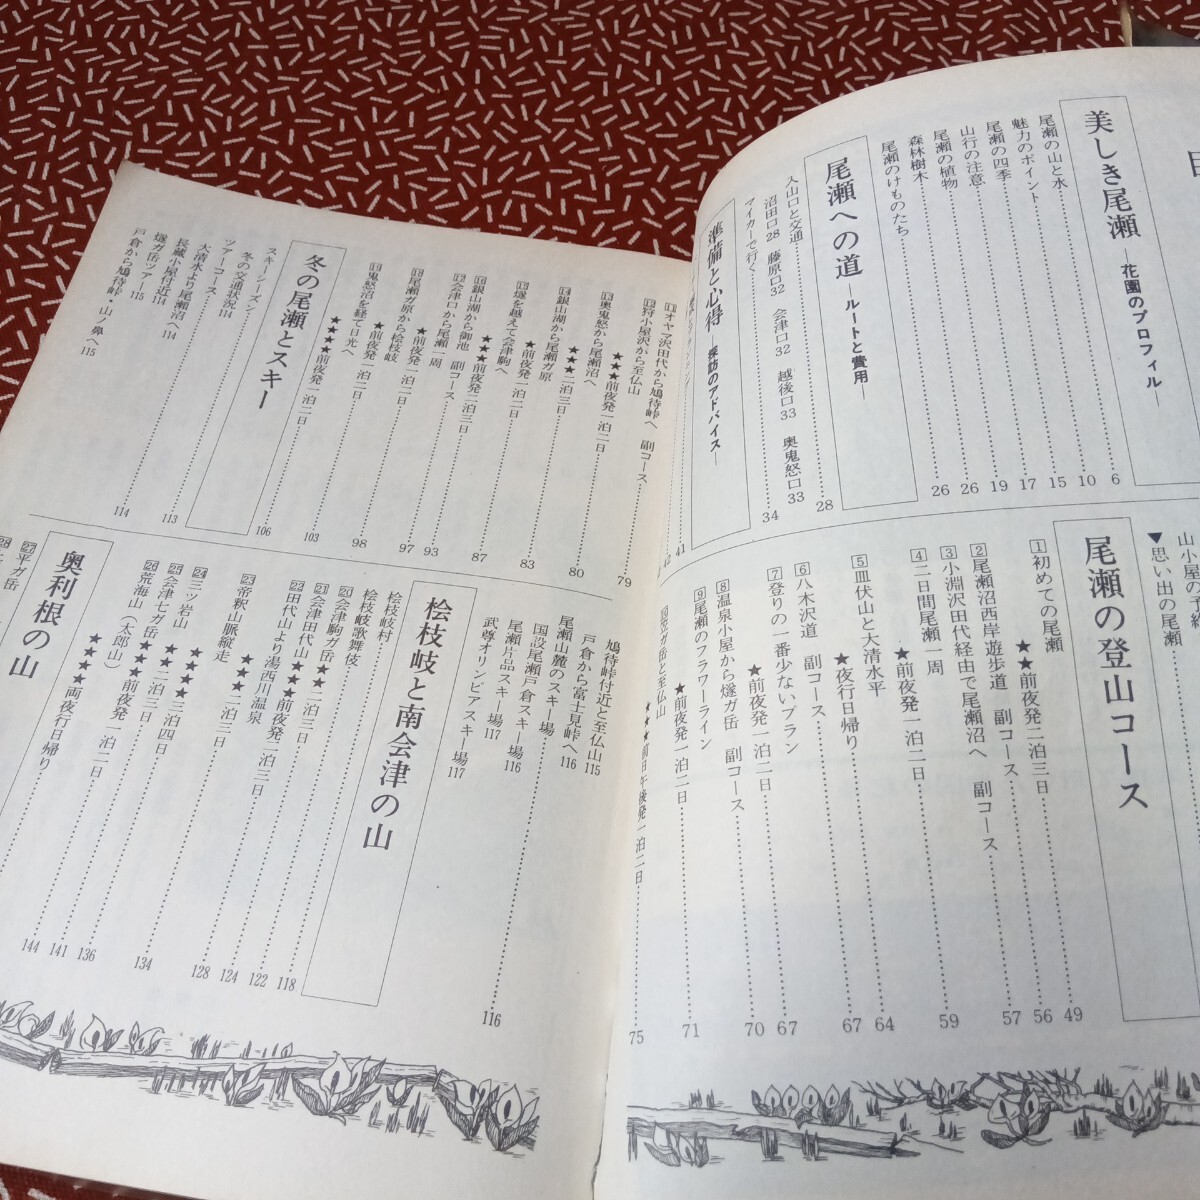 美しき尾瀬 ―花園のプロフィル―
尾瀬の山と水 6
魅力のポイント 10
尾瀬の四季 15
山行の注意 17
尾瀬の植物 19
森林樹木 26
尾瀬のけものたち 26
尾瀬への道 ―ルートと費用―
入山口と交通 28
沼田口28 藤原口32 会津口32 越後口33 奥鬼怒口33
マイカーで行く 34
準備と心得 ―探訪のアドバイス―
41
▼思い出の尾瀬
尾瀬の登山コース
1 初めての尾瀬 49
★★前夜発二泊三日 56
2 尾瀬沼西岸遊歩道 副コース 57
3 小淵沢田代経由で尾瀬沼へ 副コース
4 二日間尾瀬一周 59
★前夜発一泊二日
5 皿伏山と大清水平 64
★夜行日帰り 67
6 八木沢道 副コース 67
7 登りの一番少ないプラン
★前夜発一泊二日 70
8 温泉小屋から燧ガ岳 副コース
9 尾瀬のフラワーライン 71
★前夜発一泊二日
★★★前日午後発一泊二日 75
11 オヤマ沢田代から鳩待峠へ 副コース 79
12 狩小屋沢から至仏山
★★★前夜発一泊二日 80
13 奥鬼怒から尾瀬沼へ
★★★二泊三日 83
14 銀山湖から尾瀬ガ原
★前夜発一泊二日
15 燧を越えて会津駒へ 87
★★★前夜発二泊三日
16 銀山湖から御池 副コース 93
17 会津口から尾瀬一周 97
★前夜発一泊二日
18 尾瀬ガ原から桧枝岐 98
★前夜発一泊二日
19 鬼怒沼を経て日光へ 103
★★★★前夜発一泊二日
冬の尾瀬とスキー
スキーシーズン 106
冬の交通状況 114
ツアーコース 113
大清水より尾瀬沼へ 114
長蔵小屋付近 114
燧ガ岳ツアー 115
戸倉から鳩待峠・山ノ鼻へ 115
114
鳩待峠付近と至仏山 115
戸倉から富士見峠へ 116
尾瀬山麓のスキー場 116
国設尾瀬戸倉スキー場
尾瀬片品スキー場 116
武尊オリンピアスキー場 117
117
桧枝岐と南会津の山
桧枝岐村
桧枝岐歌舞伎 118
20 会津駒ガ岳 ★★二泊三日 122
21 会津田代山 ★★★前夜発一泊二日 124
22 田代山より湯西川温泉
★★★二泊三日 128
23 帝釈山脈縦走
24 三ツ岩山 ★★★★三泊四日 134
25 会津七ガ岳 ★★二泊三日 136
26 荒海山(太郎山) ★★★前夜発一泊二日 141
★★★★両夜行日帰り 144
奥利根の山
27 平ガ岳
28